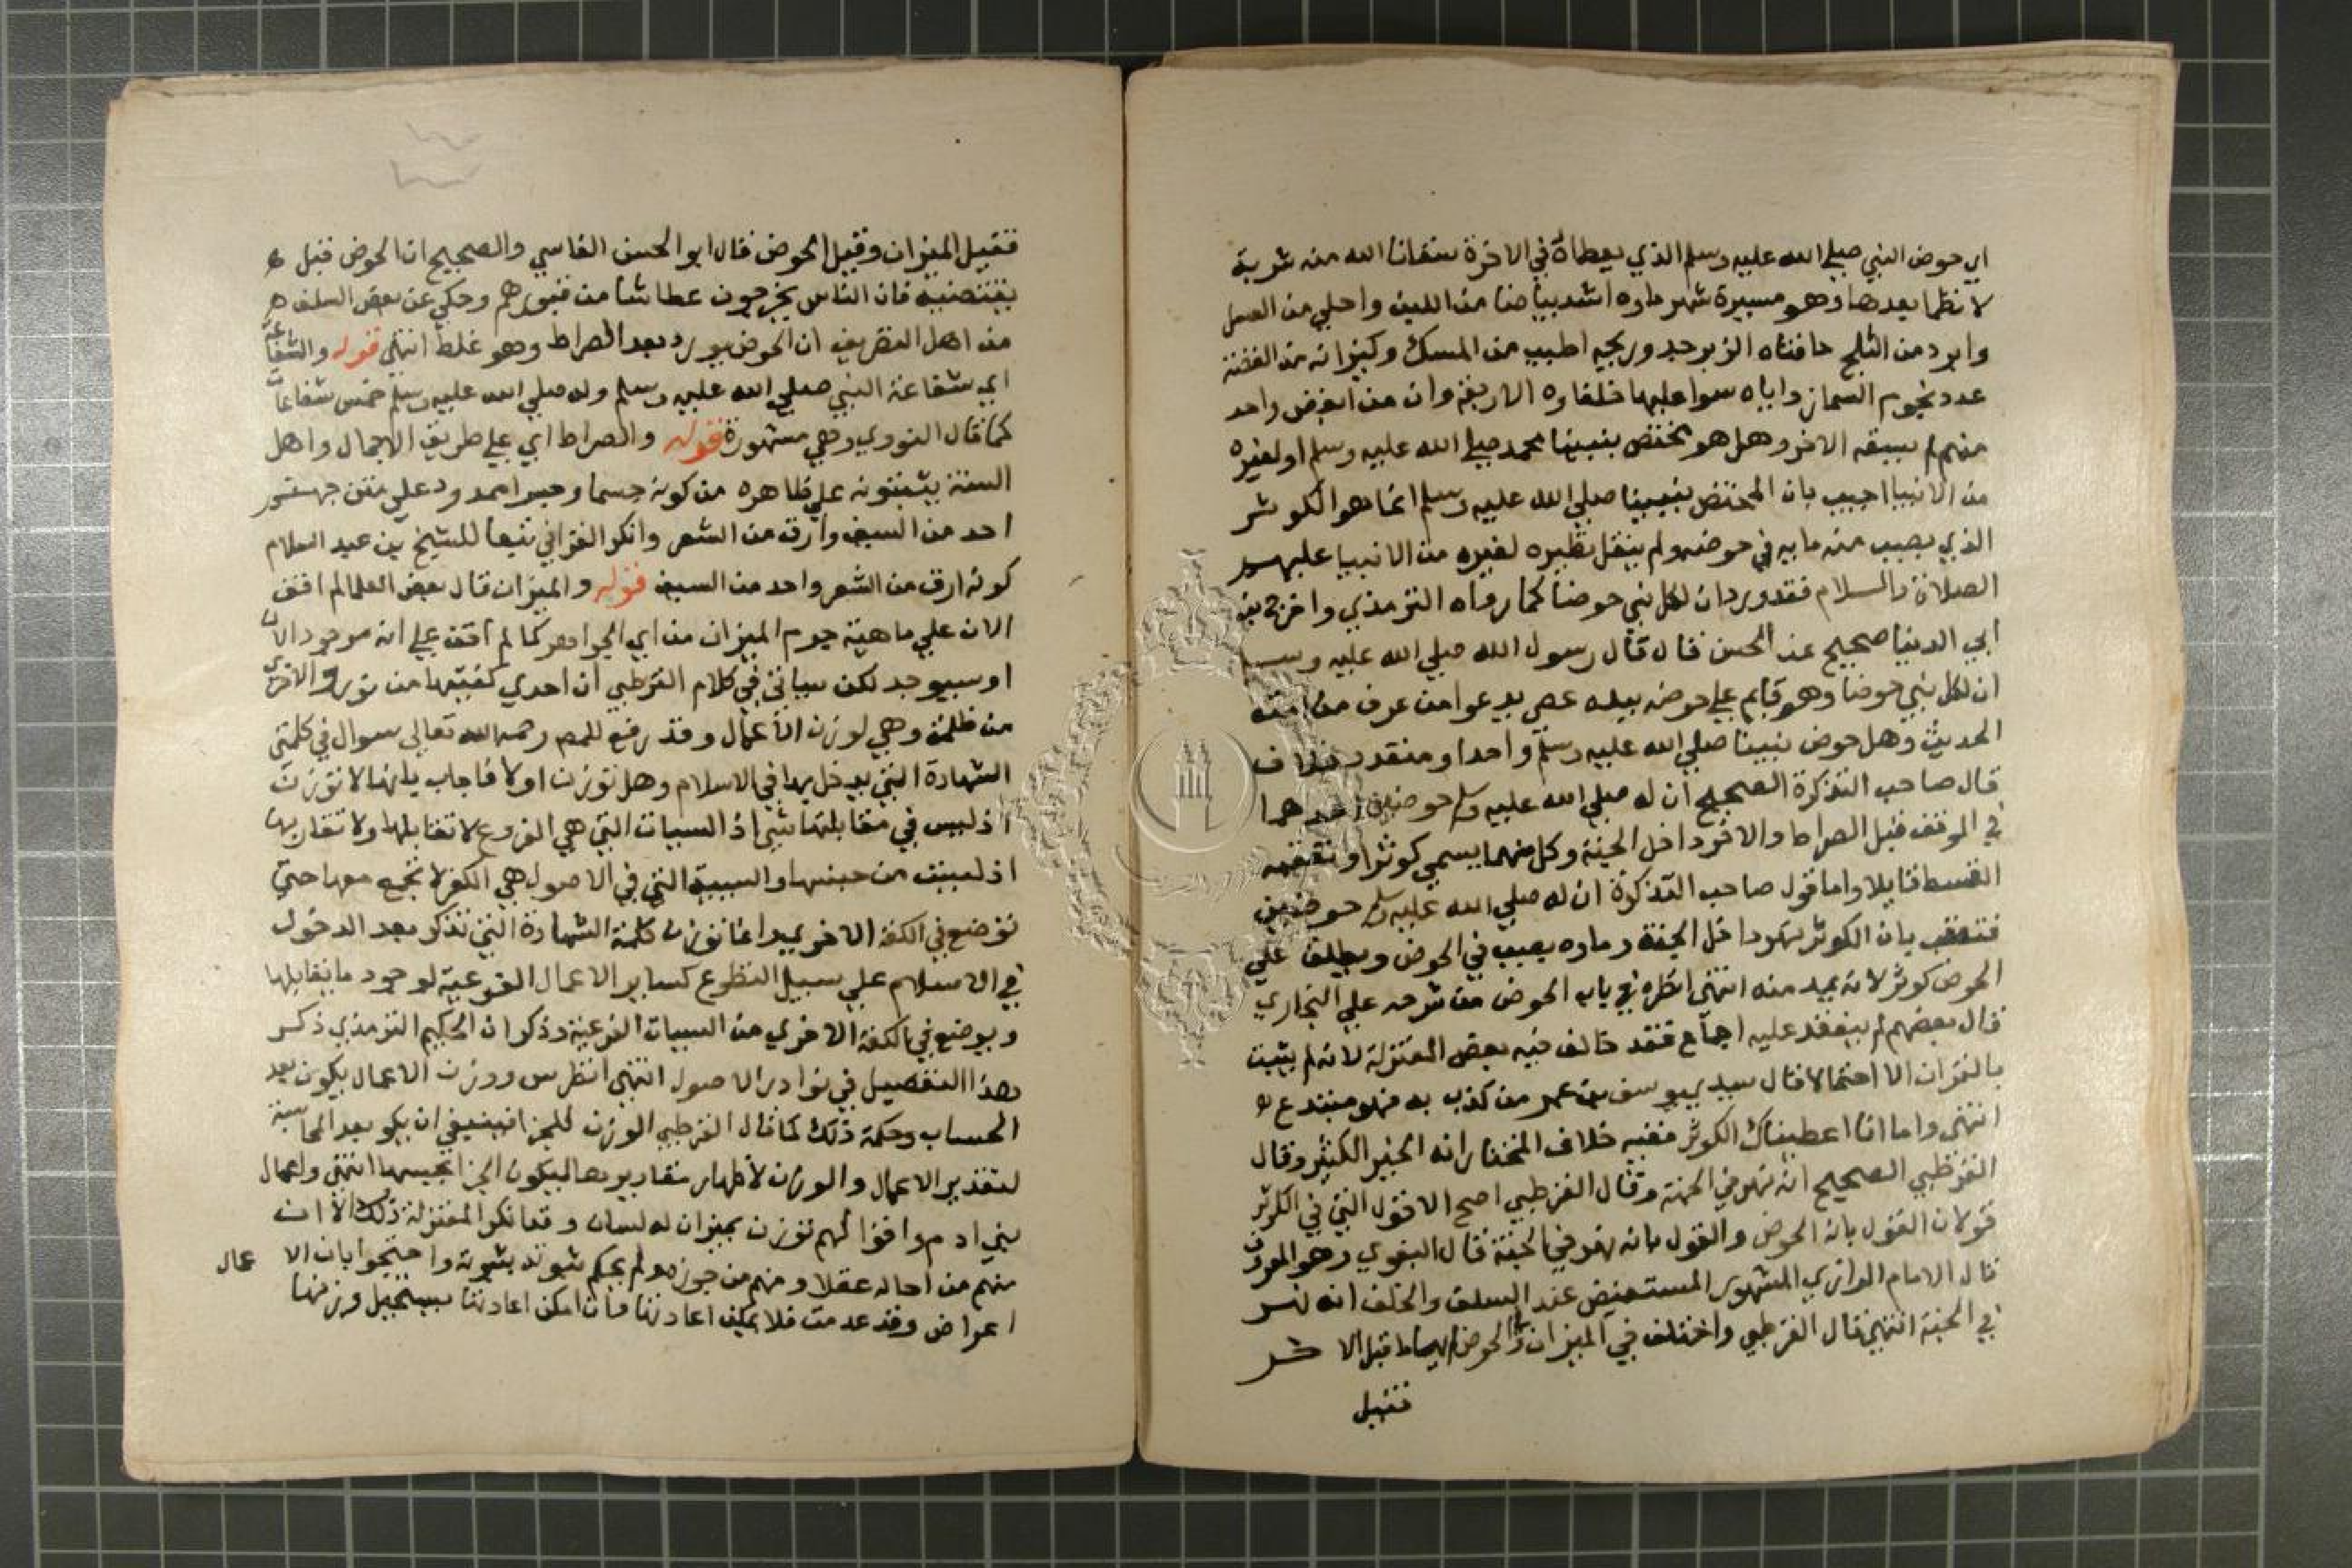 اي حوض النبي صلي الله عليه وسلم الذي يعطاه في الاخرة سقانا الله منه شربة
لا نظما بعدها وهو مسيرة شهر ماوه اشد بياضا من اللبن واحلي من العسل
وابرد من الثلج حافتاه الزبرجد وريحه اطيب من المسك وكيزانه من الفضة
عدد نجوم السما زواياه سوا عليها خلفاوه الاربعة وان من ابغض واحد
منهم لم يسقه الاخر وهل هو مختص بنبينا محمد صلي الله عليه وسلم او لغيره
من الانبيا اجيب بان المختص بنبينا صلي الله عليه وسلم انما هو الكوثر
الذي يصب من مايه في حوضه ولم ينقل نظيره لغيره من الانبيا عليهم
الصلاة والسلام فقد ورد ان لكل نبي حوضا كما رواه الترمذي واخرج بن
ابي الدنيا صحيح عن الحسن قال قال رسول الله صلي الله عليه وسلم
ان لكل نبي حوضا وهو قايم علي حوضه بيده عصي يدعوا من عرف من امته
الحديث وهل حوض نبينا صلي الله عليه وسلم واحدا ومتعدد خلاف
قال صاحب التذكرة الصحيح ان له صلي الله عليه وسلم حوضين احدهما
في الموقف قبل الصراط والاخر داخل الجنة وكل منهما يسمي كوثرا وتعقبه
القسط قايلا واما قول صاحب التذكرة ان له صلي الله عليه وسلم حوضين
فتعقب بان الكوثر نهر داخل الجنة وماوه يصب في الحوض ويطلق علي
الحوض كوثر لانه يمد منه انتهي انظره في باب الحوض من شرحه علي البخاري
قال بعضهم لم ينعقد عليه اجماع فقد خالف فيه بعض المعتزلة لانه لم يثبت
بالقران الا احتمالا قال سيدي يوسف بن عمر من كذب به فهو مبتدع
انتهي واما انا اعطيناك الكوثر ففيه خلاف المختار انه الخير الكثير وقال
القرطبي الصحيح انه نهر في الجنة وقال القرطبي اصح الاقول التي في الكوثر
قولان القول بانه الحوض والقول بانه نهر في الجنة قال البغوي وهو المعروف
قال الامام الرازي المشهور المستفيض عند السلف والخلف انه نهر
في الجنة انتهي قال القرطبي واختلف في الميزان والحوض ايهما قبل الا خر
فقيل
فقيل الميزان وقيل الحوض قال ابو الحسن القابسي والصحيح ان الحوض قبل
يقتضيه فان الناس يخرجون عطاشا من قبورهم وحكي عن بعض السلف
من اهل التصريف ان الحوض يورد بعد الصراط وهو غلط انتهي قوله والشفاعة
اي شفاعة النبي صلي الله عليه وسلم وله صلي الله عليه وسلم خمس شفاعات
كما قال النووي وهي مشهورة قوله والصراط اي علي طريق الاجمال واهل
السنة يثبتونه علي ظاهره من كونه جسما وجسرا ممدود علي متن جهنم
احد من السيف وارق من الشعر وانكر القرافي تبعا للشيخ بن عبد السلام
كونه ارق من الشعر واحد من السيف قوله والميزان قال بعض العلما لم اقف
الان علي ماهية جرم الميزان من اي الجواهر كما لم اقف علي انه موجود الان
او سيوجد لكن سياتي في كلام القرطبي ان احدي كفتيها من نور والاخري
من ظلمة وهي لوزن الاعمال وقد رفع للمص رحمه الله تعالي سوال في كلمتي
الشهادة التي يدخل بها في الاسلام وهل توزن اولا فاجاب بانها لا توزن
اذ ليس في مقابلتها شي اذ السيات التي هي الفروع لا تقابلها ولا تقاربها
اذ ليست من جنسها والسيية التي في الاصول هي الكفر لا تجمع معها حتي
توضع في الكفة الاخري وانما توزن كلمة الشهادة التي تذكر بعد الدخول
في الاسلام علي سبيل التطوع كساير الاعمال الفرعية لوجود ما يقابلها
ويوضع في الكفة الاخري من السيات الفرعية وذكر ان الحكيم الترمذي ذكر
هذا التفصيل في نوادر الاصول انتهي انظر س ووزن الاعمال يكون بعد
الحساب وحكمة ذلك كما قال القرطبي الوزن للجزا فينبغي ان يكو بعد المحاسبة
لتقدير الاعمال والوزن لاظهار مقاديرها ليكون الجزا بحسبها انتهي واعمال
بني ادم وافقوا انهم توزن بميزان له لسان وقد انكر المعتزلة ذلك الا ان
منهم من احاله عقلا ومنهم من جوزه ولم يحكم بثبوته واحتجوا بان الا عمال
اعراض وقد عدمت فلا يمكن اعادتها وان امكن اعادتها يستحيل وزنها